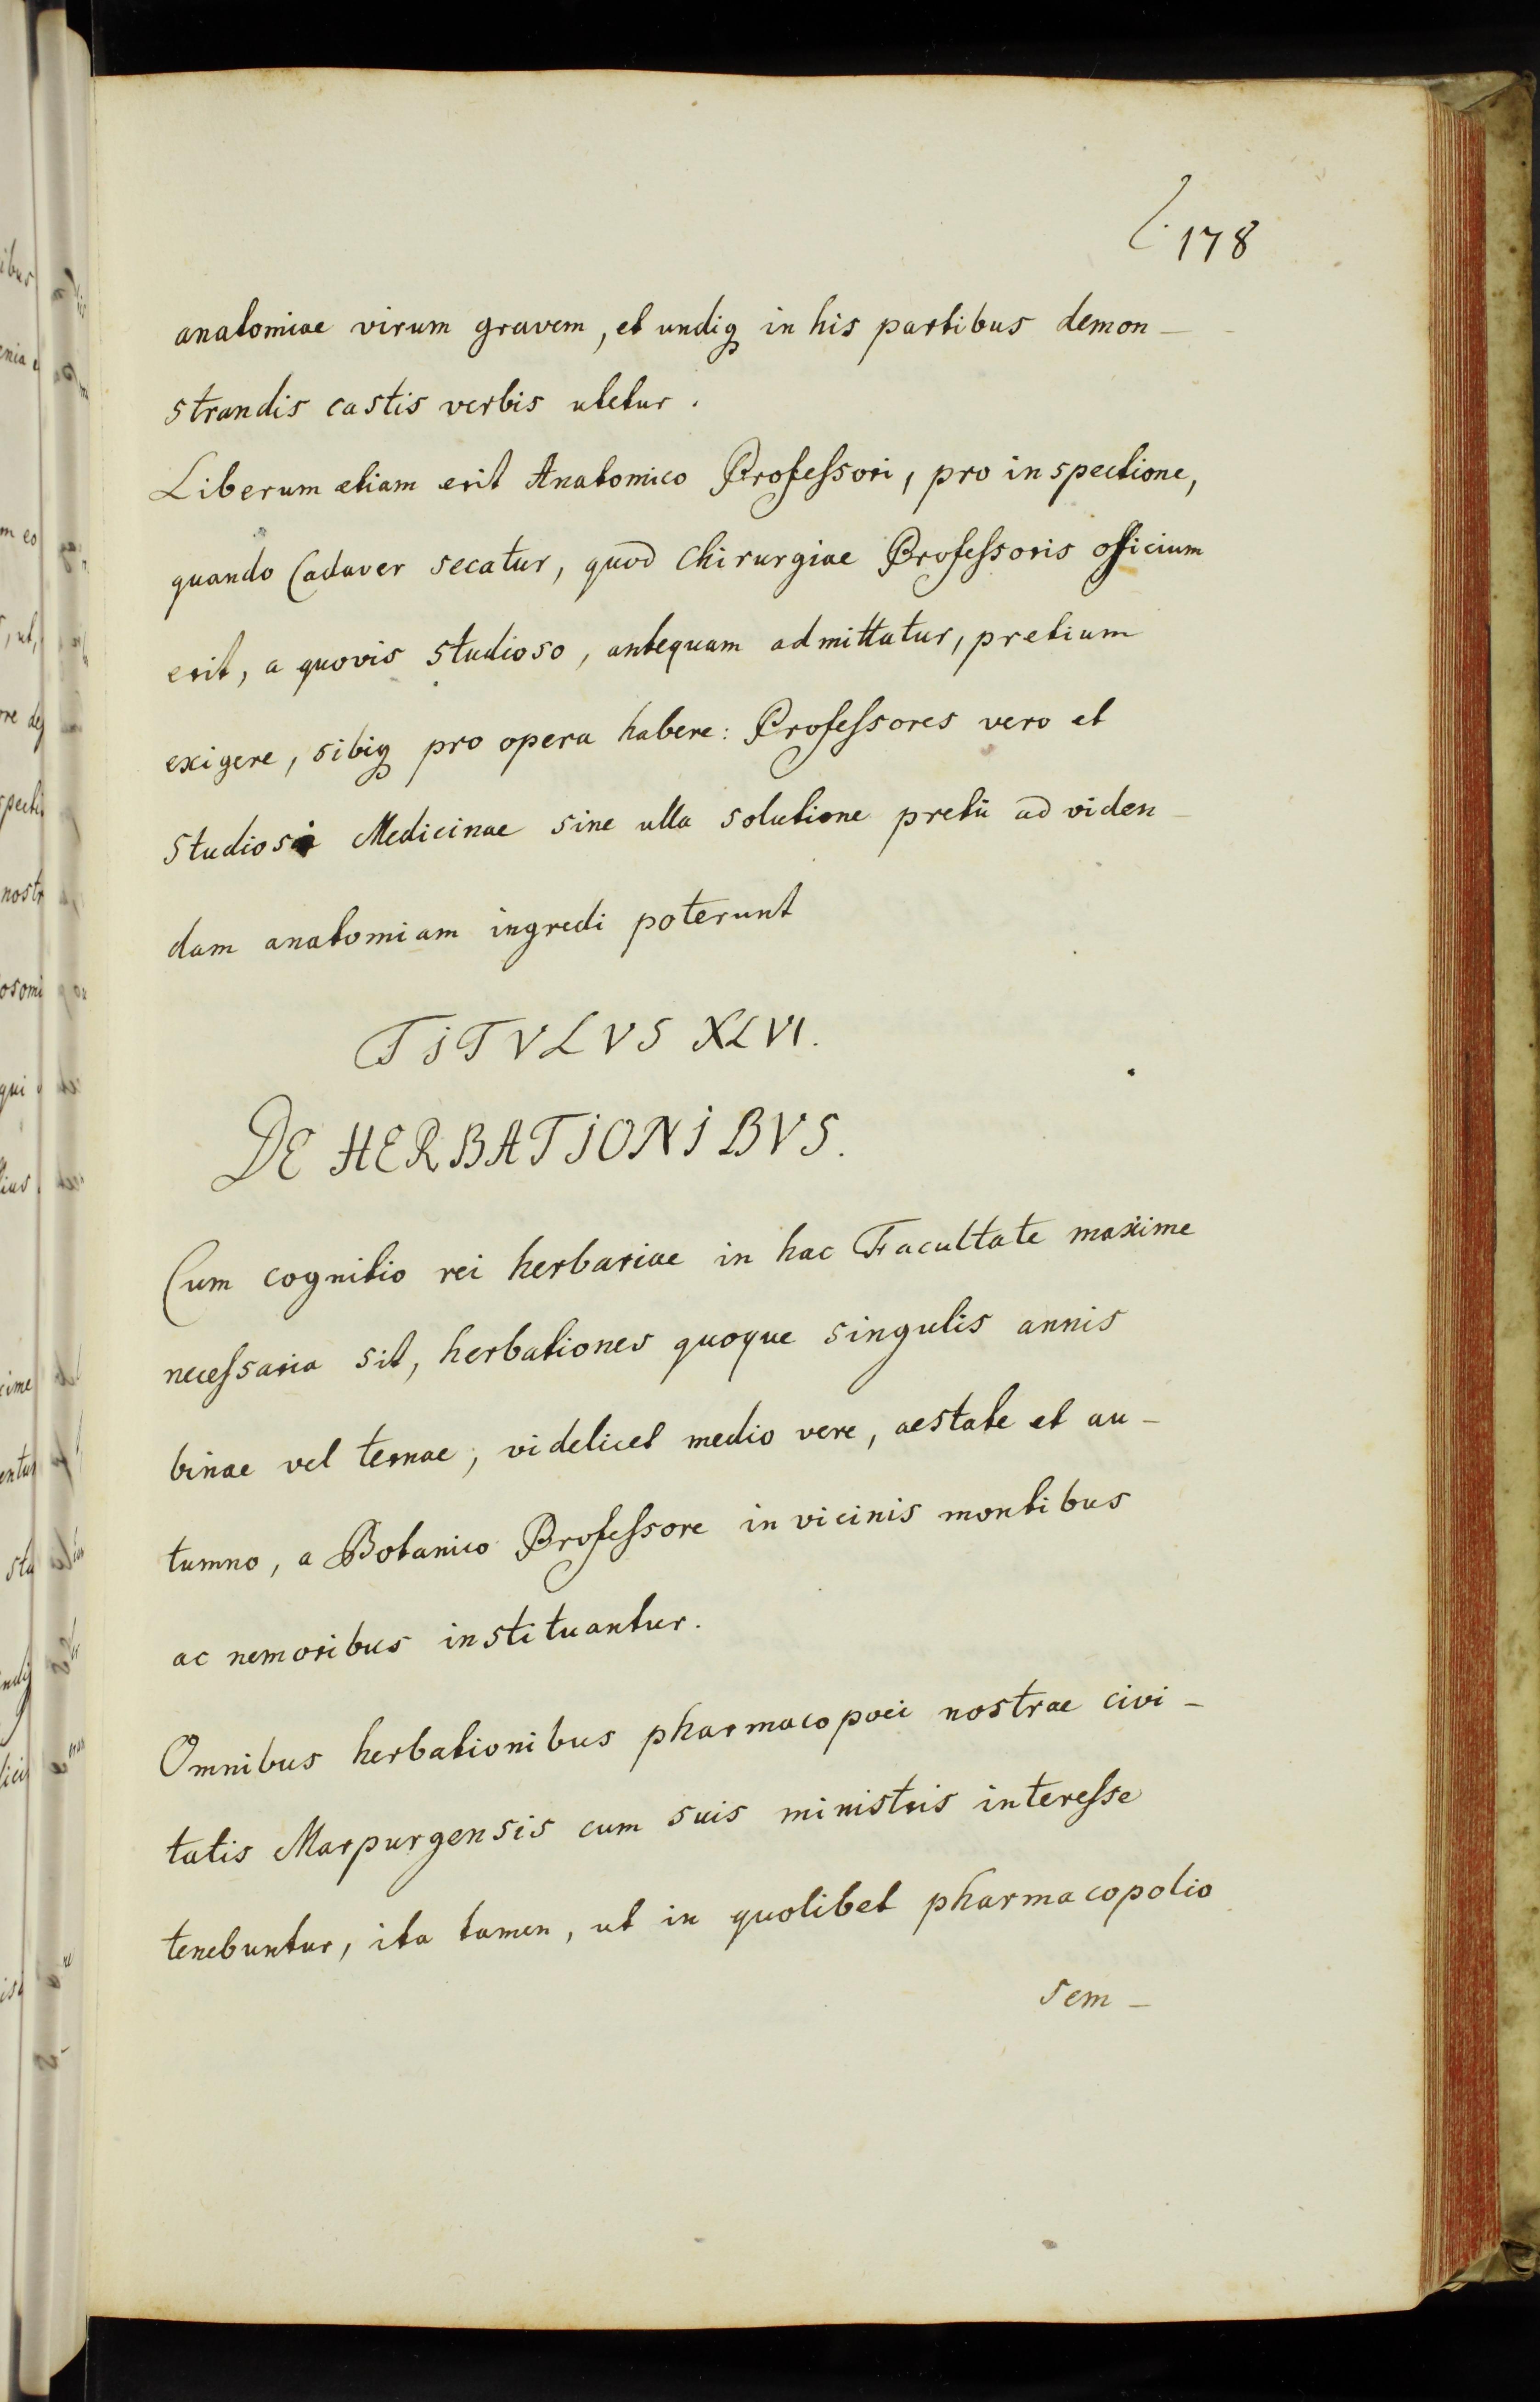 178
anatomiae virum gravem, et undiq in his partibus demon-
strandis castis verbis utetur.
Liberum etiam erit Anatomico Professori, pro inspectione,
quando Cadaver secatur, quod Chirurgiae Professoris officium
erit, a quovis studioso, antequam admittatur, pretium
exigere, sibiq pro opera habere: Professores vero et
studiosi Medicinae sine ulla solutione pretii ad viden-
dam anatomiam ingredi poterunt
TITVLVS XLVI.
DE HERBATIONIBVS.
Cum cognitio rei herbariae in hac Facultate maxime
necessaria sit, herbationes quoque singulis annis
binae vel ternae, videlicet medio vere, aestate et au-
tumno, a Botanico Professore in vicinis montibus
ac nemoribus instituantur.
Omnibus herbationibus pharmacopoei nostrae civi-
tatis Marpurgensis cum suis ministris interesse
tenebuntur, ita tamen, ut in quolibet pharmacopolio
sem-